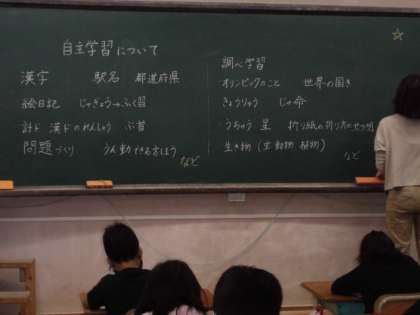 自主学習について
漢字 駅名 都道府県
絵日記 じゅぎょう→ふく習
計ド 漢ドのれんしゅう
問題づくり うん動できる方ほう
など
調べ学習
オリンピックのこと 世界の国き
きょうりゅう じゅ命
うちゅう 星 折り紙の折り方のせつ明
生き物(虫 動物 植物)
など